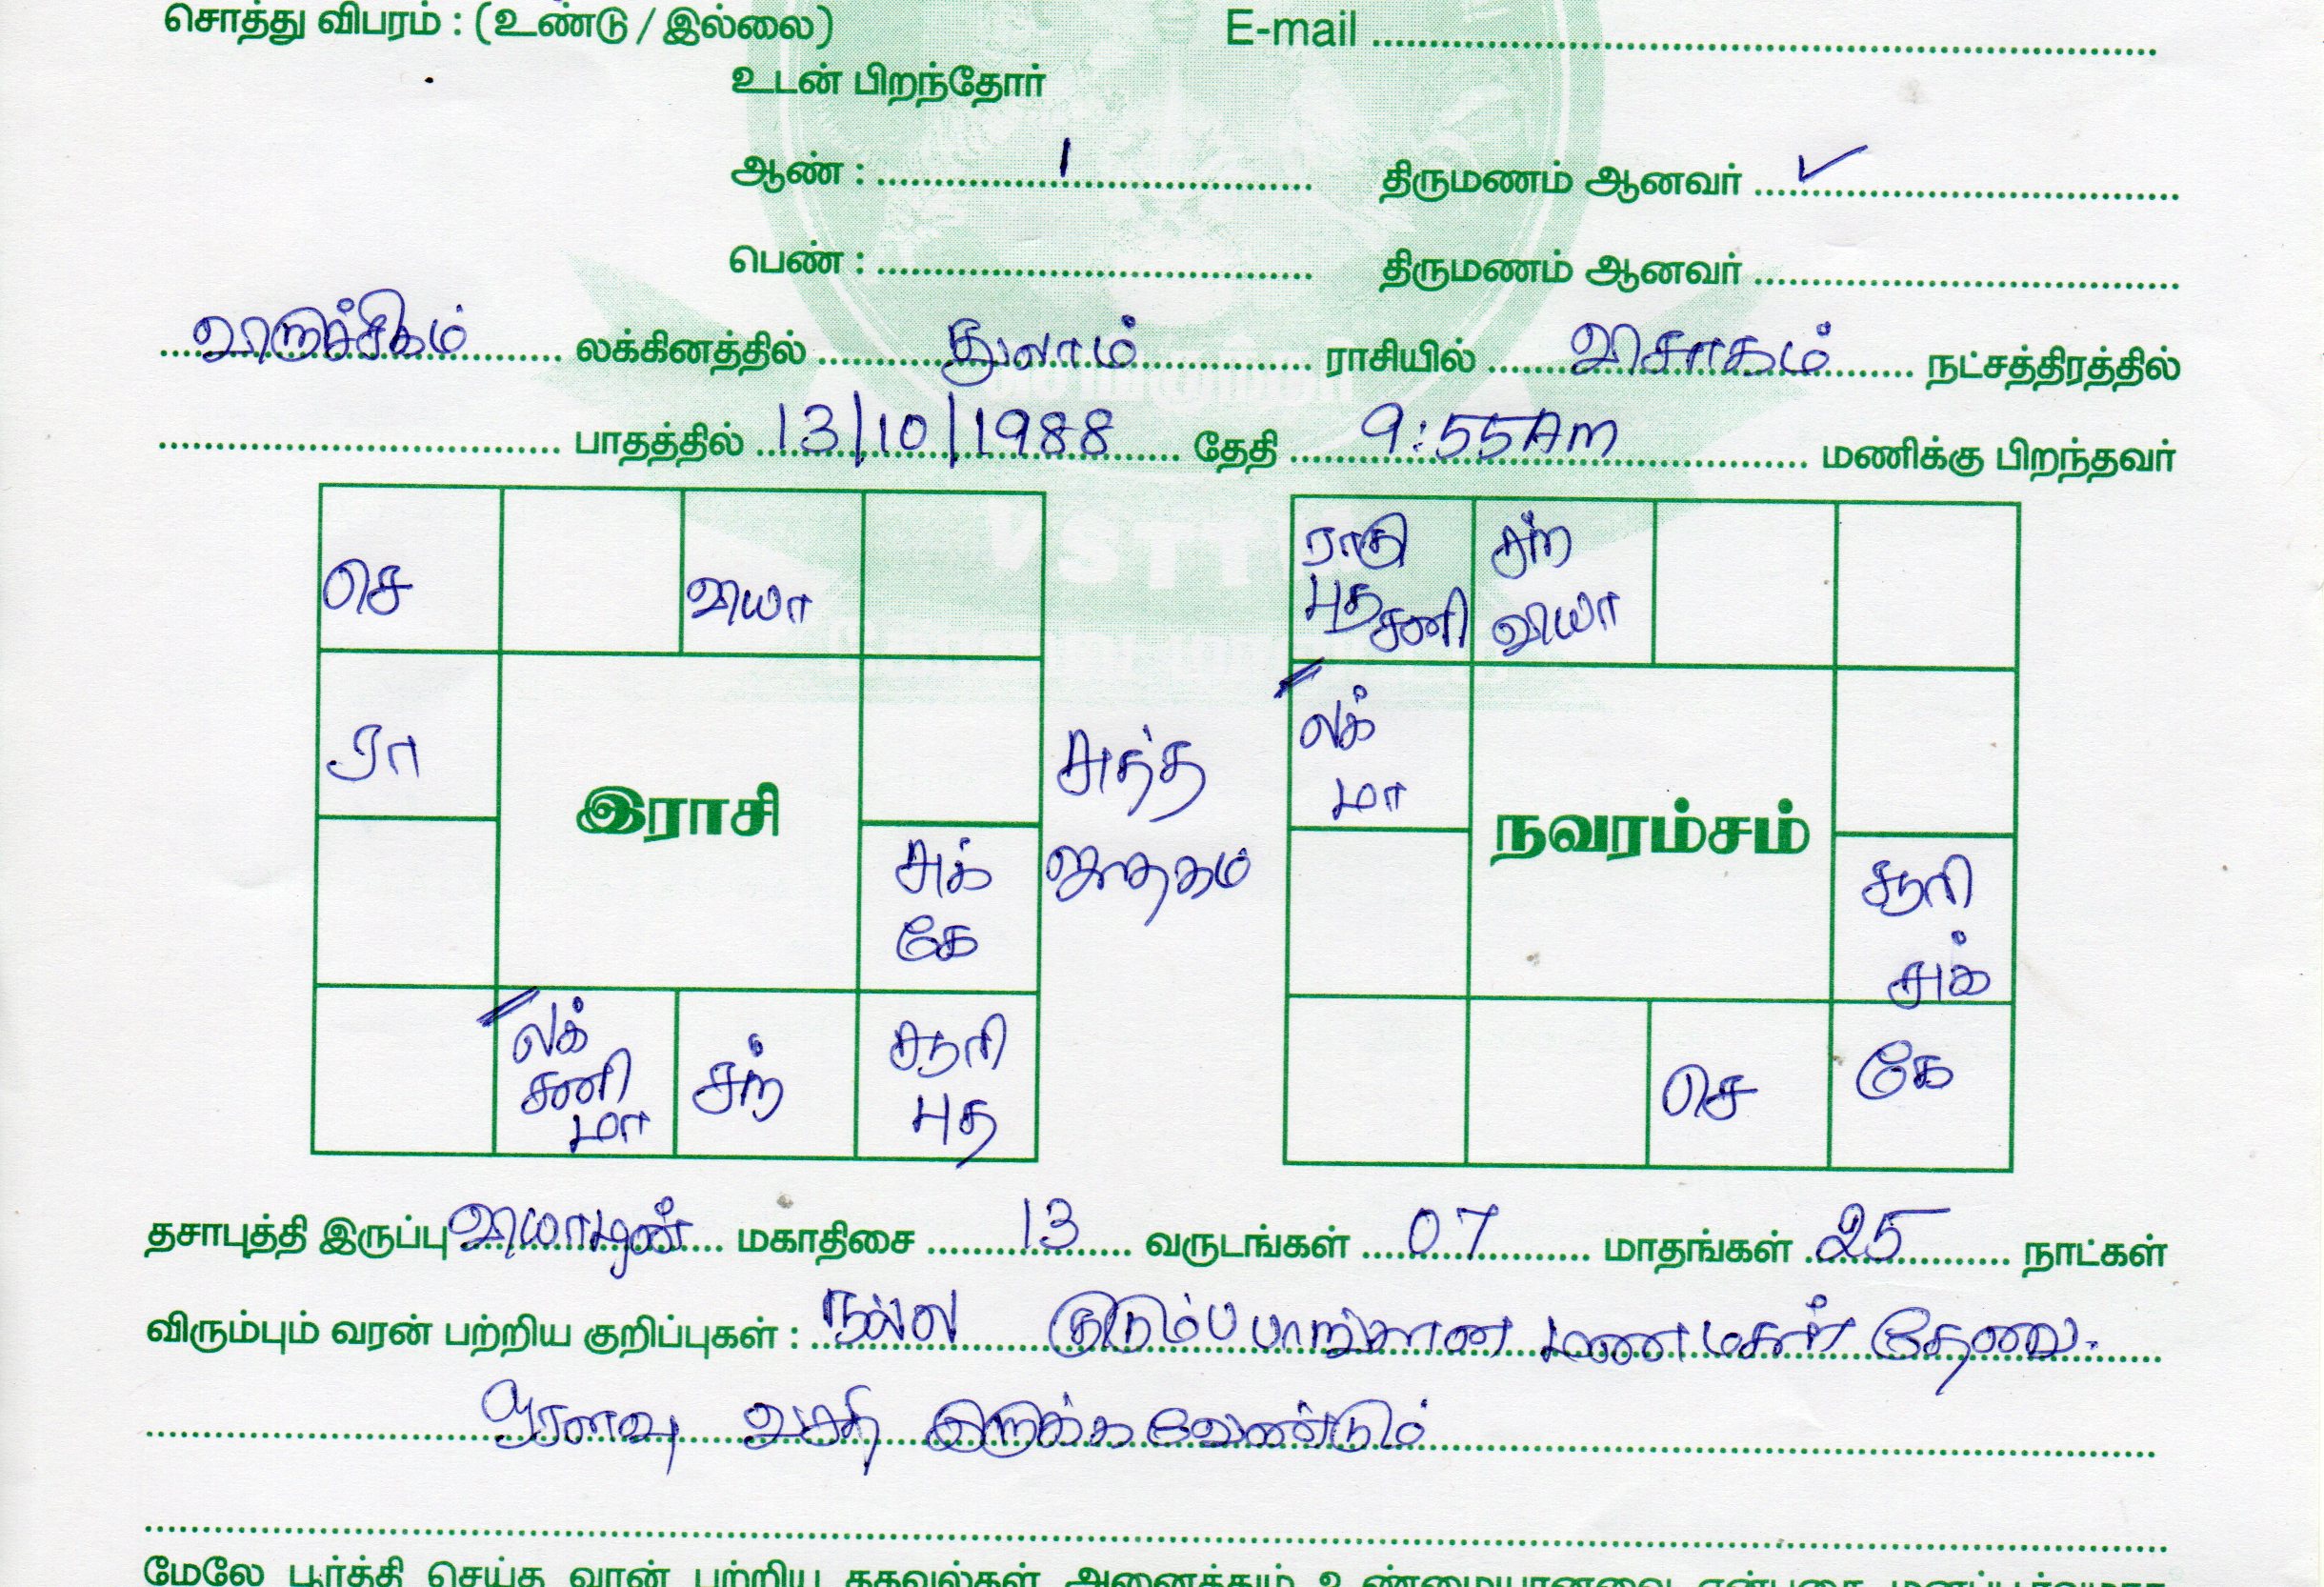 சொத்து விபரம் : (உண்டு / இல்லை) E-mail
உடன் பிறந்தோர்
ஆண் : 1 திருமணம் ஆனவர் ✓
பெண் : திருமணம் ஆனவர்
விருச்சிகம் லக்கினத்தில் துலாம் ராசியில் விசாகம் நட்சத்திரத்தில்
பாதத்தில் 13/10/1988 தேதி 9:55Am மணிக்கு பிறந்தவர்
செ வியா
ரா
இராசி
சுக்
கே
லக்
சனி
மா
சந்
சூரி
புத
சுத்த
ஜாதகம்
ராகு
புத சனி
சந்
வியா
லக்
மா
நவரம்சம்
சூரி
சுக்
செ
கே
தசாபுத்தி இருப்பு வியாழன் மகாதிசை 13 வருடங்கள் 07 மாதங்கள் 25 நாட்கள்
விரும்பும் வரன் பற்றிய குறிப்புகள் : நல்ல குடும்ப பாங்கான மணமகன் தேவை.
ஓரளவு வசதி இருக்க வேண்டும்
மேலே பூர்த்தி செய்த வரன் பற்றிய தகவல்கள் அனைத்தும் உண்மையானவை என்பதை மனப்பூர்வமாக